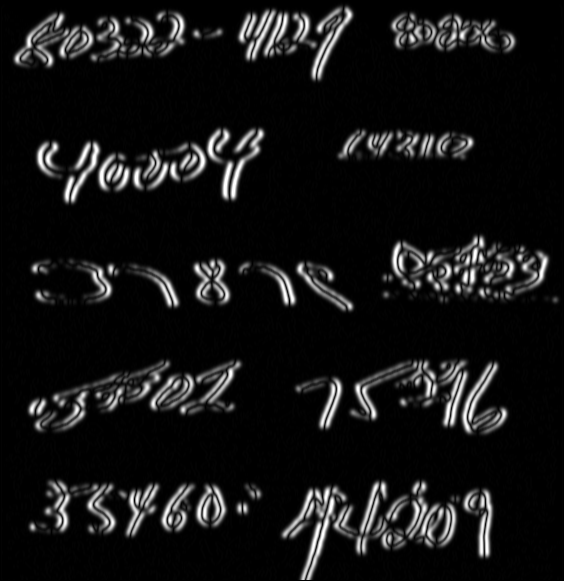 80322-4129 80206
40004 14310
37878
35502 75216
35460 44209